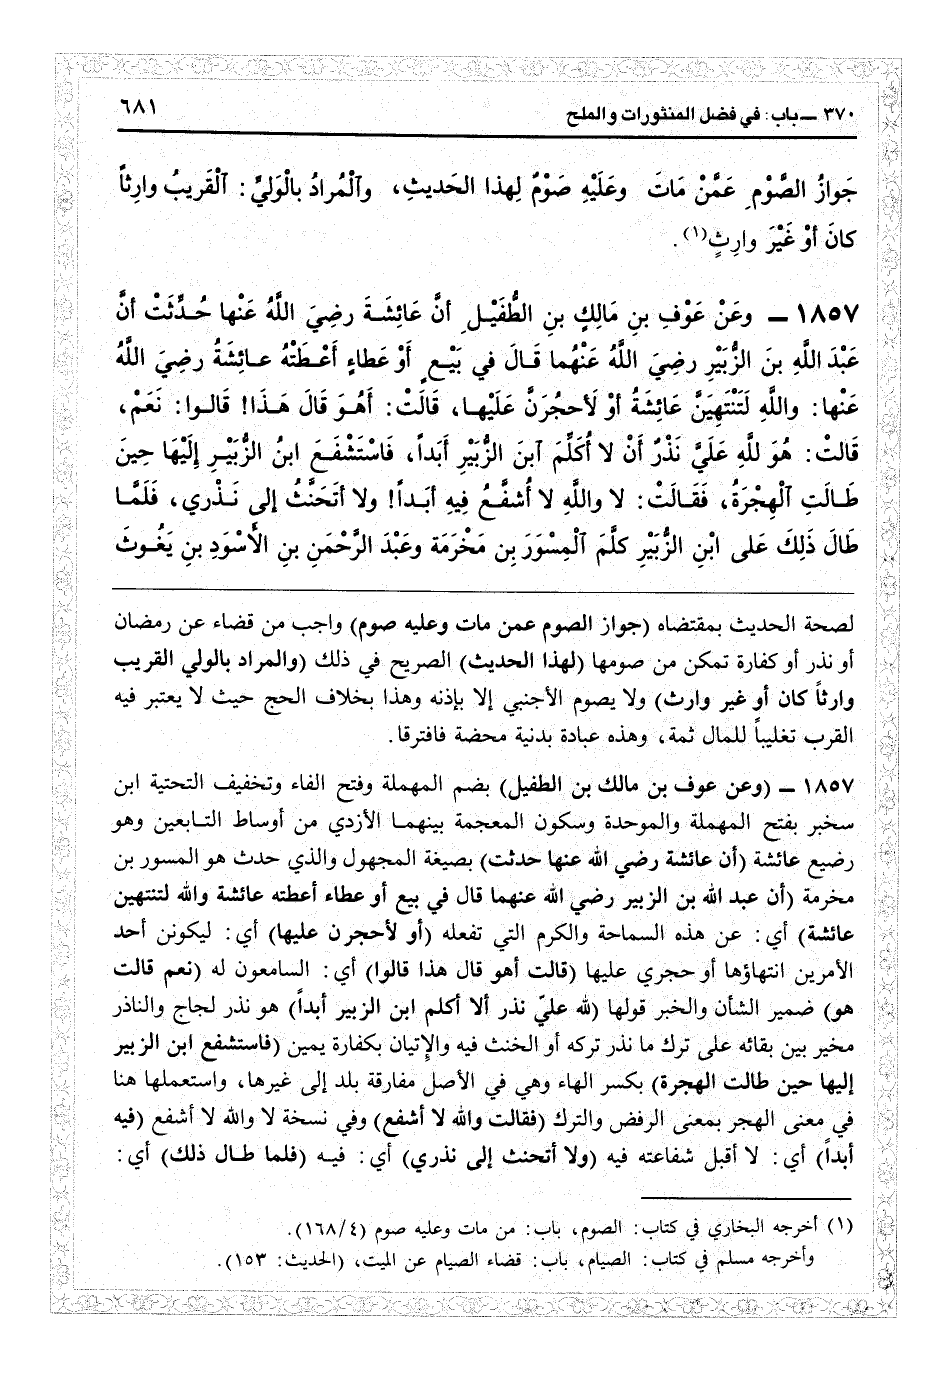 ٣٧٠ ــ باب: في فضل المنثورات والملح ٦٨١
جَوازُ الصَّوْمِ عَمَّنْ مَاتَ وعَلَيْهِ صَوْمٌ لِهذا الحَديثِ، وٱلْمُرادُ بالْوَليِّ: ٱلْقَريبُ وارِثاً
كانَ أوْ غَيْرَ وارِثٍ(١).
١٨٥٧ ــ وعَنْ عَوْفِ بنِ مَالِكٍ بنِ الطُّفَيْلِ أنَّ عَائِشَةَ رضِيَ اللَّهُ عَنْها حُدِّثَتْ أنَّ
عَبْدَ اللَّهِ بنَ الزُّبَيْرِ رضِيَ اللَّهُ عَنْهُما قَالَ في بَيْعٍ أَوْ عَطاءٍ أَعْطَتْهُ عائِشَةُ رضِيَ اللَّهُ
عَنْها: واللَّهِ لَتَنْتَهِيَنَّ عَائِشَةُ أوْ لَأحجُرَنَّ عَلَيْها، قَالَتْ: أَهُوَ قَالَ هَذَا! قَالوا: نَعَمْ،
قَالَتْ: هُوَ للَّهِ عَلَيَّ نَذْرٌ أَنْ لا أُكَلِّمَ ٱبنَ الزُّبَيْرِ أبَداً، فَاسْتَشْفَعَ ابنُ الزُّبَيْرِ إلَيْهَا حِينَ
طَالَتِ ٱلْهِجْرَةُ، فَقَالَتْ: لا واللَّهِ لا أُشفِّعُ فِيهِ أبَداً! ولا أتَحَنَّثُ إلى نَذْري، فَلَمَّا
طَالَ ذَلِكَ عَلى ابْنِ الزُّبَيْرِ كلَّمَ ٱلْمِسْوَرَ بنَ مَخْرَمَة وعَبْدَ الرَّحْمَنِ بنِ الأَسْوَدِ بنِ يَغُوثَ
لصحة الحديث بمقتضاه (جواز الصوم عمن مات وعليه صوم) واجب من قضاء عن رمضان
أو نذر أو كفارة تمكن من صومها (لهذا الحديث) الصريح في ذلك (والمراد بالولي القريب
وارثاً كان أو غير وارث) ولا يصوم الأجنبي إلا بإذنه وهذا بخلاف الحج حيث لا يعتبر فيه
القرب تغليباً للمال ثمة، وهذه عبادة بدنية محضة فافترقا.
١٨٥٧ ــ (وعن عوف بن مالك بن الطفيل) بضم المهملة وفتح الفاء وتخفيف التحتية ابن
سخبر بفتح المهملة والموحدة وسكون المعجمة بينهما الأزدي من أوساط التابعين وهو
رضيع عائشة (أن عائشة رضي الله عنها حدثت) بصيغة المجهول والذي حدث هو المسور بن
مخرمة (أن عبد الله بن الزبير رضي الله عنهما قال في بيع أو عطاء أعطته عائشة والله لتنتهين
عائشة) أي: عن هذه السماحة والكرم التي تفعله (أو لأحجرن عليها) أي: ليكونن أحد
الأمرين انتهاؤها أو حجري عليها (قالت أهو قال هذا قالوا) أي: السامعون له (نعم قالت
هو) ضمير الشأن والخبر قولها (لله عليّ نذر ألا أكلم ابن الزبير أبداً) هو نذر لجاج والناذر
مخير بين بقائه على ترك ما نذر تركه أو الخنث فيه والإتيان بكفارة يمين (فاستشفع ابن الزبير
إليها حين طالت الهجرة) بكسر الهاء وهي في الأصل مفارقة بلد إلى غيرها، واستعملها هنا
في معنى الهجر بمعنى الرفض والترك (فقالت والله لا أشفع) وفي نسخة لا والله لا أشفع (فيه
أبداً) أي: لا أقبل شفاعته فيه (ولا أتحنث إلى نذري) أي: فيه (فلما طال ذلك) أي:
(١) أخرجه البخاري في كتاب: الصوم، باب: من مات وعليه صوم (١٦٨/٤).
وأخرجه مسلم في كتاب: الصيام، باب: قضاء الصيام عن الميت، (الحديث: ١٥٣).